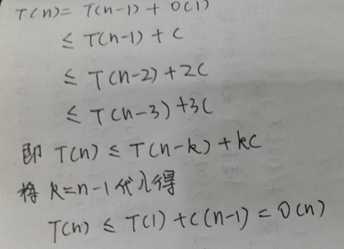 T(n) = T(n-1) + O(1)
≤ T(n-1) + C
≤ T(n-2) + 2C
≤ T(n-3) + 3C
即 T(n) ≤ T(n-k) + kC
将 k=n-1 代入得
T(n) ≤ T(1) + C(n-1) = O(n)